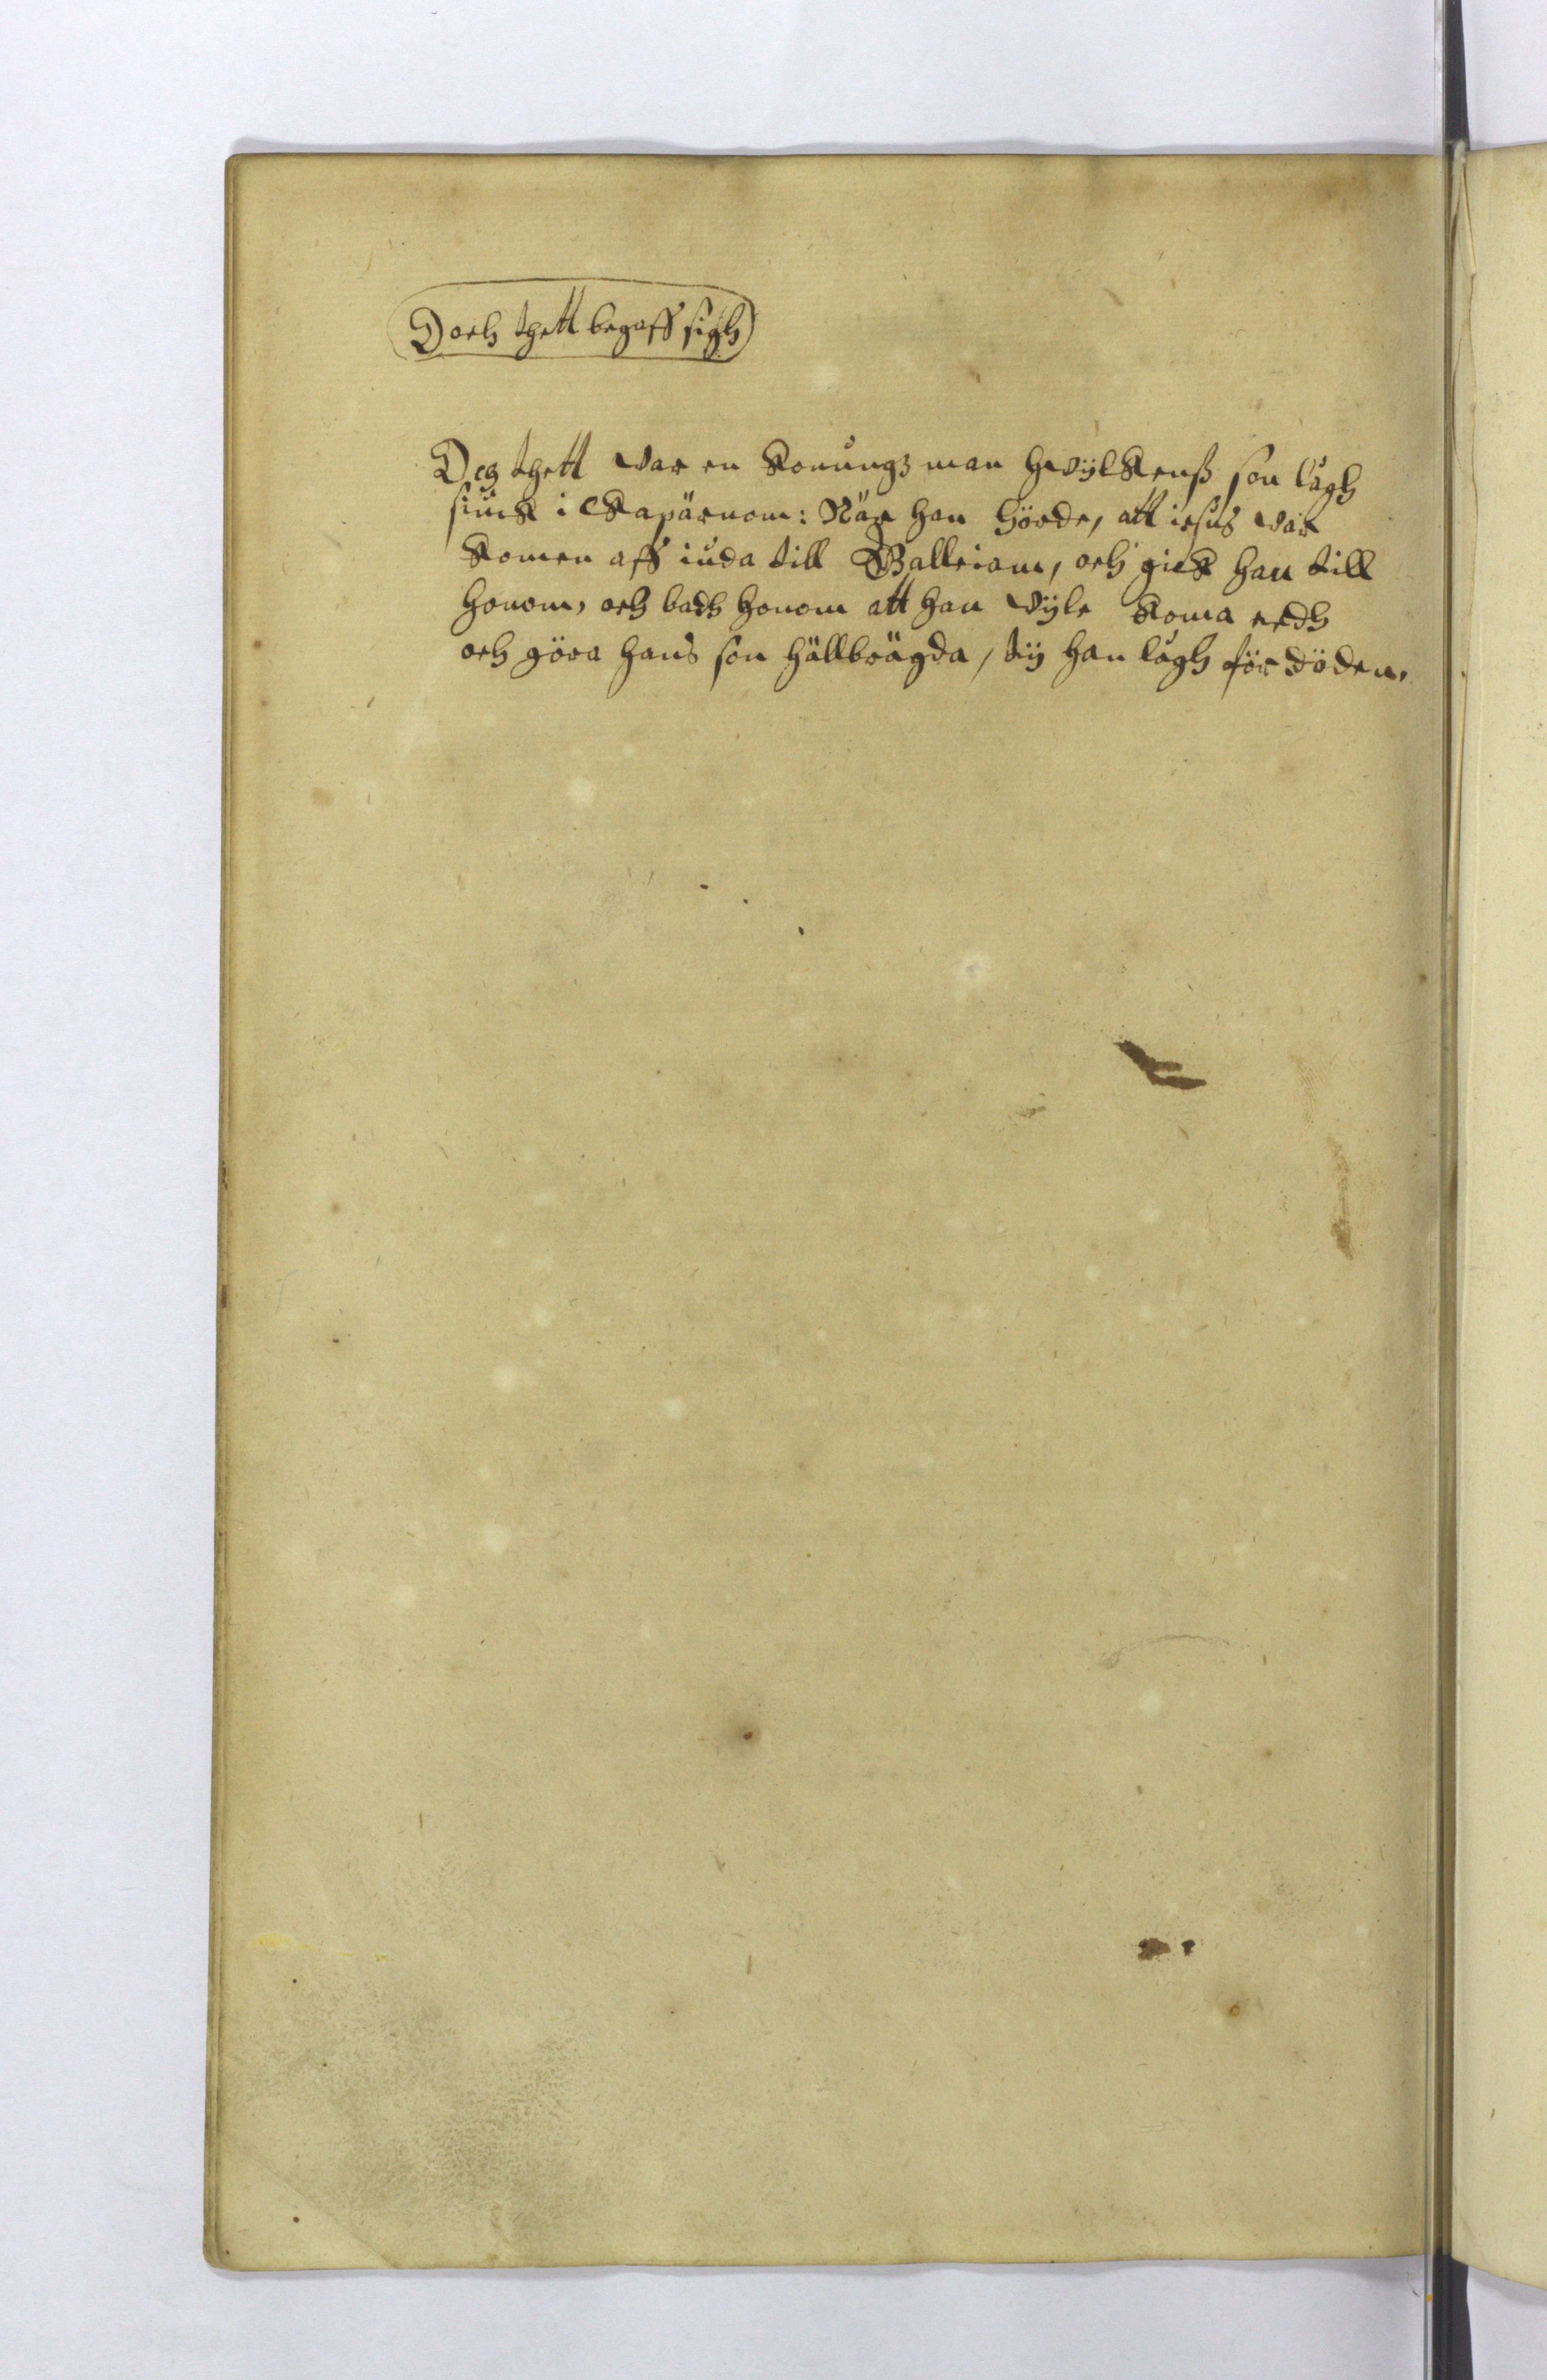 Doch thett begaff sigh
Och thett war en Konungz man hwylkenß son lågh
siuck i Kapärnom: När han hörde, att iesus war
Komen aff iuda till Galleiam, och gick han till
honom, och badh honom att han wyle Koma nedh
och göra hans son hällbrägda, ty han lågh för döden.